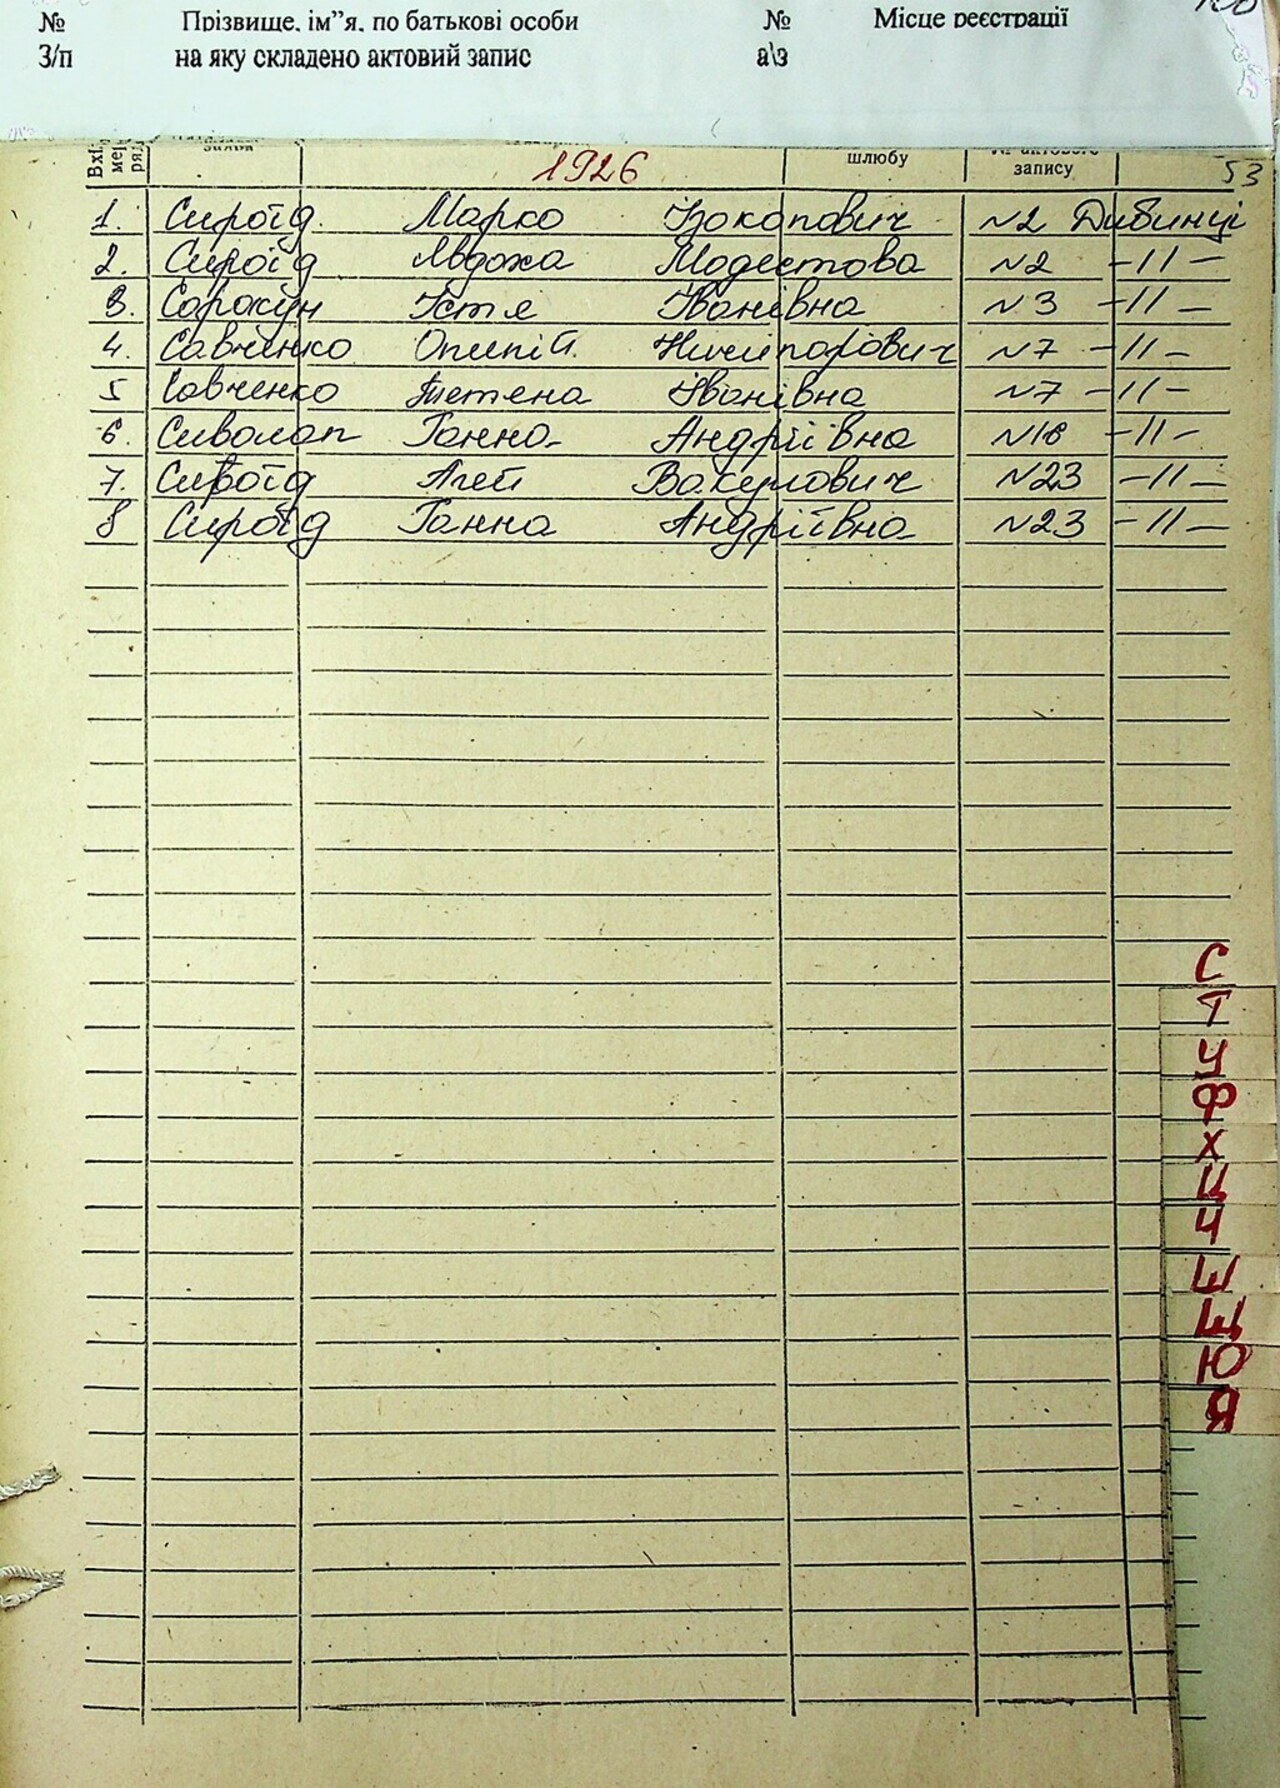 № Прізвище, ім"я, по батькові особи № Місце реєстрації
З/п на яку складено актовий запис а\з
Вхі мер ряд заяви 1926 шлюбу № актового запису 53
1. Сироїд Марко Прокопович №2 Дибинці
2. Сироїд Явдоха Модестова №2 -11-
3. Сорокун Устя Іванівна №3 -11-
4. Савченко Опипій Ничипорович №7 -11-
5 Савченко Тетена Іванівна №7 -11-
6. Сиволап Ганна Андріївна №16 -11-
7. Сироїд Агей Вакулович №23 -11-
8 Сироїд Ганна Андріївна №23 -11-
С
Т
У
Ф
Х
Ц
Ч
Ш
Щ
Ю
Я